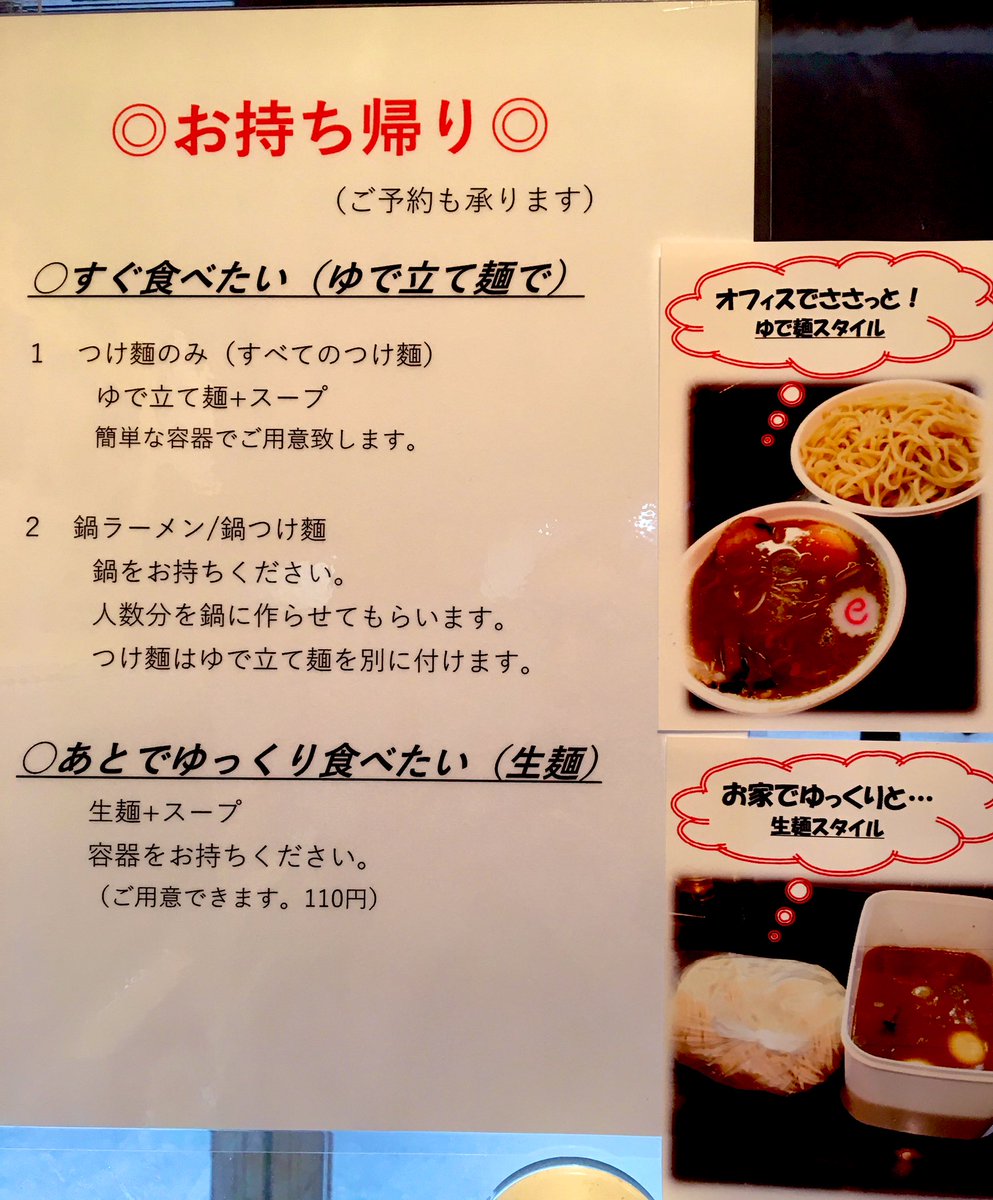 ◎お持ち帰り◎
（ご予約も承ります）
○すぐ食べたい（ゆで立て麺で）
1 つけ麵のみ（すべてのつけ麵）
ゆで立て麺+スープ
簡単な容器でご用意致します。
2 鍋ラーメン/鍋つけ麵
鍋をお持ちください。
人数分を鍋に作らせてもらいます。
つけ麵はゆで立て麺を別に付けます。
○あとでゆっくり食べたい（生麺）
生麺+スープ
容器をお持ちください。
（ご用意できます。110円）
オフィスでささっと！
ゆで麺スタイル
お家でゆっくりと…
生麺スタイル